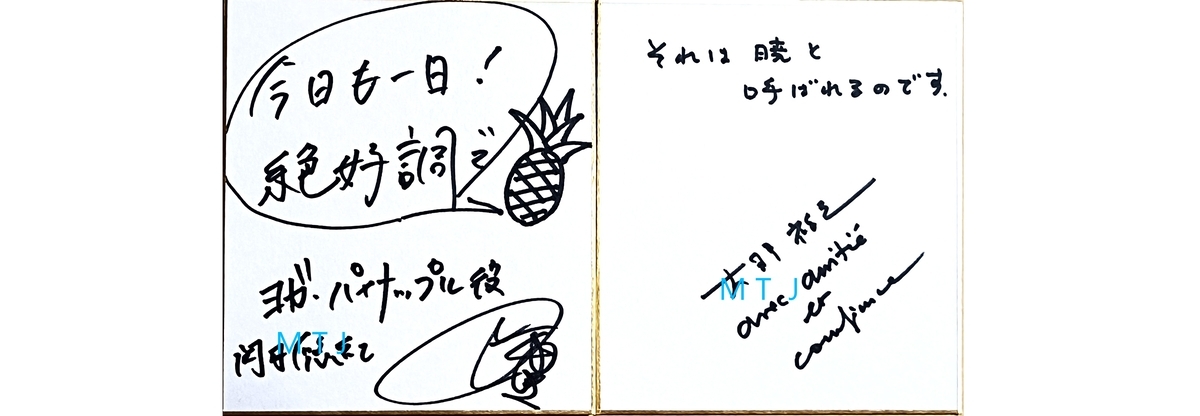 今日も一日!
絶好調で
ヨガ・パイナップル役
MTJ
それは 暁と
呼ばれるのです.
MTJ
avec amitié
et
confiance